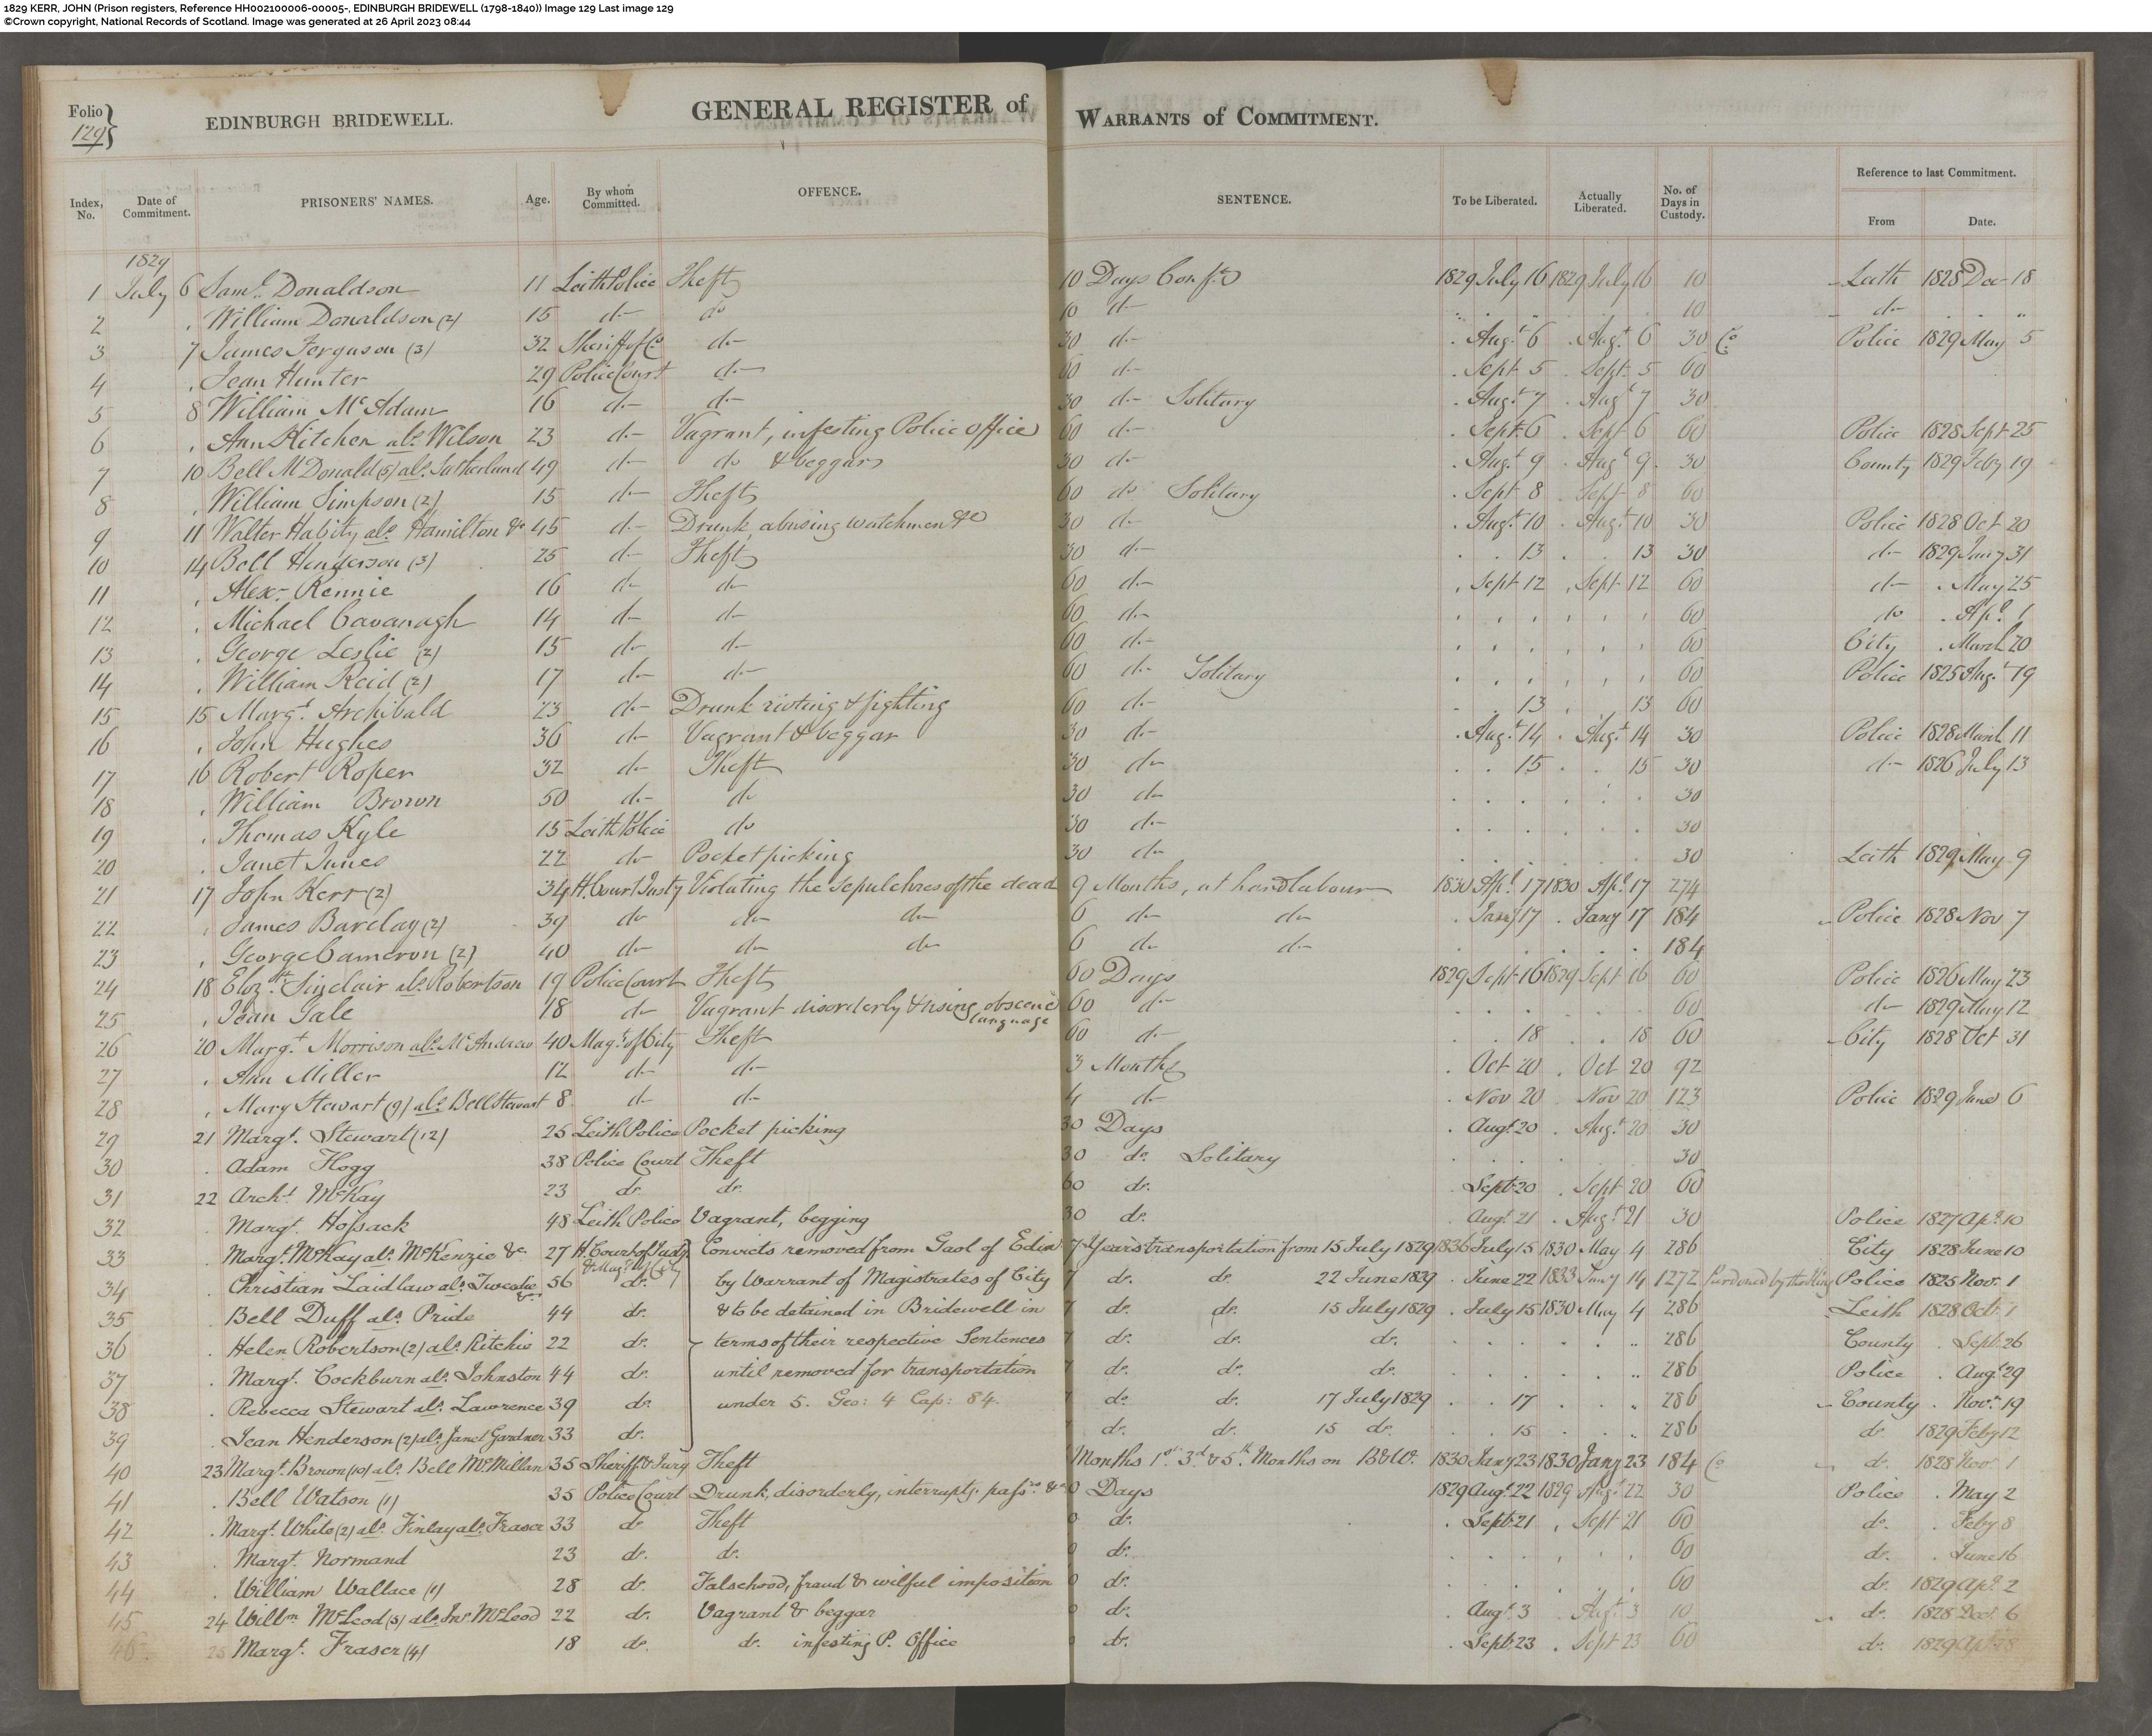 1829 KERR, JOHN (Prison registers, Reference HH002100006-00005-, EDINBURGH BRIDEWELL (1798-1840)) Image 129 Last image 129
©Crown copyright, National Records of Scotland. Image was generated at 26 April 2023 08:44
Folio 129
EDINBURGH BRIDEWELL. GENERAL REGISTER of WARRANTS of COMMITMENT.
Index, No. Date of Commitment. PRISONERS' NAMES. Age. By whom Committed. OFFENCE. SENTENCE. To be Liberated. Actually Liberated. No. of Days in Custody. Reference to last Commitment. From Date.
1829
1 July 6 Saml. Donaldson 11 Leith Police Theft 10 Days Conft. 1829 July 16 1829 July 16 10 Leith 1828 Dec 18
2 . William Donaldson (2) 15 do do 10 do . . . . 10 do . . "
3 7 James Ferguson (3) 32 Sheriff of Co. do 30 do . Augt. 6 . Augt. 6 30 Co. Police 1829 May 5
4 . Jean Hunter 29 Police Court do 60 do . Sept. 5 . Sept. 5 60
5 8 William McAdam 16 do do 30 do Solitary . Augt. 7 . Augt. 7 30
6 . Ann Kitchen als. Wilson 23 do Vagrant, infesting Police office 60 do . Sept. 6 . Sept 6 60 Police 1828 Sept 25
7 10 Bell McDonald (5) als. Sutherland 49 do do & beggar 30 do . Augt. 9 . Augt. 9 . 30 County 1829 Feby 19
8 . William Simpson (2) 15 do Theft 60 do Solitary . Sept 8 . Sept 8 60
9 11 Walter Habity als. Hamilton &c 45 do Drunk, abusing watchmen &c 30 do . Augt. 10 . Augt. 10 30 Police 1828 Oct 20
10 14 Bell Henderson (3) 25 do Theft 30 do . . 13 . . 13 30 do 1829 Jany 31
11 . Alexr. Rennie 16 do do 60 do . Sept 12 . Sept 12 60 do . May 25
12 . Michael Cavanagh 14 do do 60 do . . . . . . 60 do . Apl. 1
13 . George Leslie (2) 15 do do 60 do . . . . . . 60 City . March 20
14 . William Reid (2) 17 do do 60 do Solitary . . . . . . 60 Police 1825 Augt. 19
15 15 Margt. Archibald 23 do Drunk rioting & fighting 60 do . . 13 . . 13 60
16 . John Hughes 36 do Vagrant & beggar 30 do . Augt. 14 . Augt. 14 30 Police 1828 March 11
17 16 Robert Roper 32 do Theft 30 do . . 15 . . 15 30 do 1826 July 13
18 . William Brown 50 do do 30 do . . . . . . 30
19 . Thomas Kyle 15 Leith Police do 30 do . . . . . . 30
20 . Janet Innes 22 do Pocket picking 30 do . . . . . . 30 Leith 1829 May 9
21 17 John Kerr (2) 34 H. Court Justy Violating the sepulchres of the dead 9 Months, at hard labour 1830 Apl. 17 1830 Apl. 17 274
22 . James Barclay (2) 39 do do do 6 do do . Jany 17 . Jany 17 184 Police 1828 Nov 7
23 . George Cameron (2) 40 do do do 6 do do . . . . . . 184
24 18 Elizth. Sinclair als. Robertson 19 Police Court Theft 60 Days 1829 Sept 16 1829 Sept 16 60 Police 1826 May 23
25 . Jean Gale 18 do Vagrant disorderly & using obscene language 60 do . . . . . . 60 do 1829 May 12
26 20 Margt. Morrison als. McAndrew 40 Mags. of City Theft 60 do . . 18 . . 18 60 City 1828 Oct 31
27 . Ann Miller 12 do do 3 Months . Oct 20 . Oct 20 92
28 . Mary Stewart (9) als. Bell Stewart 8 do do 4 do . Nov 20 . Nov 20 123 Police 1829 June 6
29 21 Margt. Stewart (12) 25 Leith Police Pocket picking 30 Days . Augt. 20 . Augt. 20 30
30 . Adam Hogg 38 Police Court Theft 30 do. Solitary . . . . 30
31 22 Archd. McKay 23 do. do. 60 do. . Sept. 20 . Sept 20 60
32 . Margt. Hossack 48 Leith Police Vagrant, begging 30 do. . Augt. 21 . Augt. 21 30 Police 1827 Apl. 10
33 . Margt. McKay als. McKenzie &c. 27 H. Court of Justy & Mags. of City Convicts removed from Gaol of Edinr 7 Years transportation from 15 July 1829 1836 July 15 1830 May 4 286 City 1828 June 10
34 . Christian Laidlaw als. Tweedie &c. 56 do. by Warrant of Magistrates of City 7 do. do. 22 June 1829 . June 22 1833 Jany 14 1272 Pardoned by the King Police 1825 Nov. 1
35 . Bell Duff als. Pride 44 do. & to be detained in Bridewell in 7 do. do. 15 July 1829 . July 15 1830 May 4 286 Leith 1828 Oct. 1
36 . Helen Robertson (2) als. Ritchie 22 do. terms of their respective Sentences 7 do. do. do. . . . . . " 286 County . Sept. 26
37 . Margt. Cockburn als. Johnston 44 do. until removed for transportation 7 do. do. do. . . . . . " 286 Police . Augt. 29
38 . Rebecca Stewart als. Lawrence 39 do. under 5. Geo: 4 Cap: 84. 7 do. do. 17 July 1829 . . 17 . . " 286 County . Novr. 19
39 . Jean Henderson (2) als. Janet Gardner 33 do. do. do. 15 do. . . 15 . . " 286 do. 1829 Feby 12
40 23 Margt. Brown (10) als. Bell McMillan 35 Sheriff & Jury Theft Months 1st. 3d. & 5th. Months on B & Wr. 1830 Jany 23 1830 Jany 23 184 Co do. 1828 Nov 1
41 . Bell Watson (1) 35 Police Court Drunk, disorderly, interruptg. passrs. &c 0 Days 1829 Augt. 22 1829 Augt. 22 30 Police . May 2
42 . Margt. White (2) als. Finlay als. Fraser 33 do. Theft 0 do. . Sept. 21 . Sept 21 60 do. . Feby 8
43 . Margt. Normand 23 do. do. 0 do. . . . . . 60 do. . June 16
44 . William Wallace (1) 28 do. Falsehood, fraud & wilful imposition 0 do. . . . . . 60 do. 1829 Apl. 2
45 24 Willm McLeod (5) als. Jno. McLeod 22 do. Vagrant & beggar 0 do. . Augt. 3 . Augt. 3 10 do. 1828 Dec. 6
46 25 Margt. Fraser (4) 18 do. do. infesting P. Office 0 do. . Sept. 23 . Sept 23 60 do. 1829